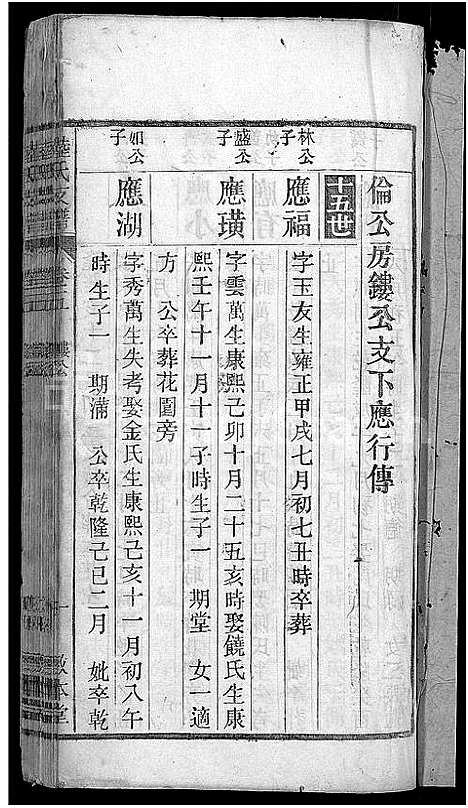 倫公房鏤公支下應行傳
十五世
林公子
應福
字玉友生雍正甲戌七月初七丑時卒葬
盛公子
應璜
字雲萬生康熙己卯十月二十五亥時娶饒氏生康
熙壬午十一月十一子時生子一 期堂 女一適
方 公卒葬花園旁
如公子
應湖
字秀萬生失考娶金氏生康熙己亥十一月初八午
時生子一 期滿 公卒乾隆己巳二月 妣卒乾
氏支譜
卷五
鏤公
一
敦本堂